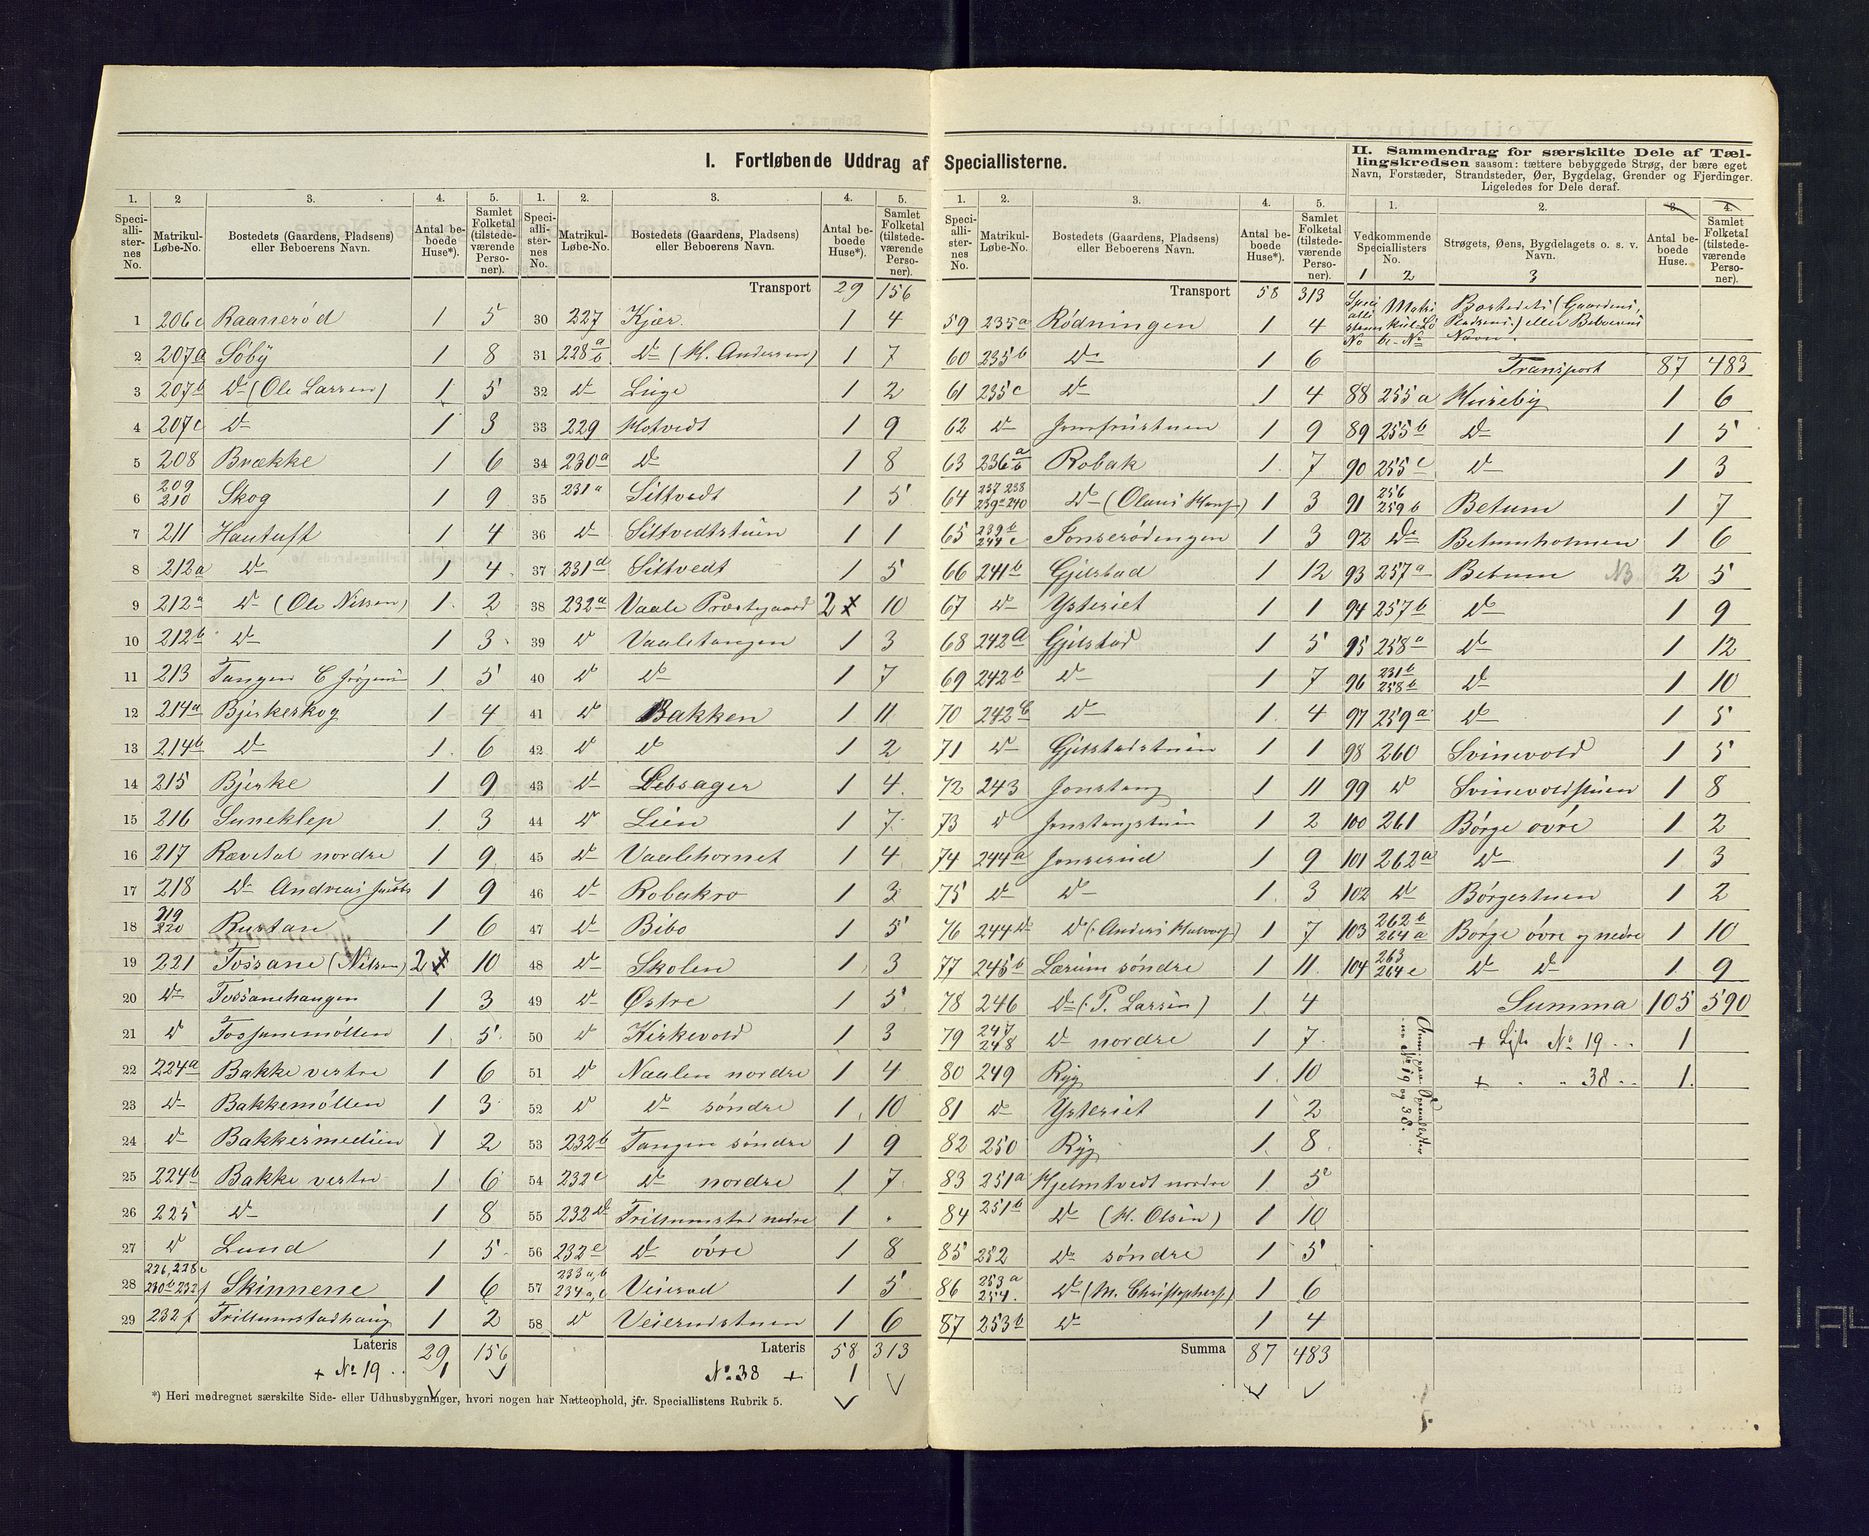 I. Fortløbende Uddrag af Speciallisterne.
II. Sammendrag for særskilte Dele af Tæl-
lingskredsen saasom: tættere bebyggede Strøg, der bære eget
Navn, Forstæder, Strandsteder, Øer, Bygdelag, Grender og Fjerdinger.
Ligeledes for Dele deraf.
1. 2 3. 4. 5.
Speciallisternes No. Matrikul-Løbe-No. Bostedets (Gaardens, Pladsens) eller Beboerens Navn. Antal beboede Huse*). Samlet Folketal (tilstedeværende Personer).
1 206c Raanerød 1 5
2 207a Søby 1 8
3 207b Do (Ole Larsen) 1 5
4 207c Do 1 3
5 208 Brække 1 6
6 209 210 Skog 1 9
7 211 Hautuft 1 4
8 212a Do 1 4
9 212a Do (Ole Nilsen) 1 2
10 212b Do 1 3
11 213 Tangen 1 5
12 214a Bjerkeskog 1 4
13 214b Do 1 6
14 215 Bjerke 1 9
15 216 Suneklep 1 3
16 217 Rævetal nordre 1 9
17 218 Do Andreas 1 9
18 219 220 Rustan 1 6
19 221 Fossane (Nilsen) 2 10
20 Do Fossanehaugen 1 3
21 Do Fossanemøllen 1 5
22 224a Bakke vestre 1 6
23 Do Bakkemøllen 1 3
24 Do Bakkesmedien 1 2
25 224b Bakke vestre 1 6
26 225 Do 1 8
27 Do Lund 1 5
28 226, 228c 230b 232f Skinnene 1 6
29 232f Trillumstadhaug 1 2
Lateris 29 156
+ No 19 .. 1
*) Heri medregnet særskilte Side- eller Udhusbygninger, hvori nogen har Natteophold, jfr. Speciallistens Rubrik 5.
1. 2. 3. 4. 5.
Speciallisternes No. Matrikul-Løbe-No. Bostedets (Gaardens, Pladsens) eller Beboerens Navn. Antal beboede Huse*). Samlet Folketal (tilstedeværende Personer).
Transport 29 156
30 227 Kjær 1 4
31 228a b Do (H. Andersen) 1 7
32 Do Linge 1 2
33 229 Hotvedt 1 9
34 230a Do 1 8
35 231a Siltvedt 1 5
36 Do Siltvedtstuen 1 1
37 231d Siltvedt 1 5
38 232a Vaale Præstegaard 2 10
39 Do Vaaletangen 1 3
40 Do Do 1 7
41 Do Bakken 1 11
42 Do Do 1 2
43 Do Lebsager 1 4
44 Do Lien 1 7
45 Do Vaalehornet 1 4
46 Do Robakro 1 3
47 Do Bibo 1 5
48 Do Skolen 1 3
49 Do Østre 1 5
50 Do Kirkevold 1 3
51 Do Naalen nordre 1 4
52 Do Do søndre 1 10
53 232b Tangen søndre 1 9
54 232c Do nordre 1 7
55 232d Trillumstad nedre 1 .
56 232e Do øvre 1 8
57 233a,b 234a,c Veierød 1 5
58 Do Veierudstuen 1 6
Lateris 58 313
No 38 + 1
1. 2. 3. 4. 5.
Speciallisternes No. Matrikul-Løbe-No. Bostedets (Gaardens, Pladsens) eller Beboerens Navn. Antal beboede Huse*). Samlet Folketal (tilstedeværende Personer).
Transport 58 313
59 235a Rødningen 1 4
60 235b Do 1 6
61 235c Do 1 4
62 Do Jomfrustuen 1 9
63 236a b Robak 1 7
64 237 238 239a 240 Do (Olaus Hans) 1 3
65 239b 244c Jonserødengen 1 3
66 241b Gjelstad 1 12
67 Do Ysteriet 1 1
68 242a Gjelstad 1 5
69 242b Do 1 7
70 242c Do 1 4
71 Do Gjelstadstuen 1 1
72 243 Jonstang 1 11
73 Do Jonstangstuen 1 2
74 244a Jonserud 1 9
75 Do Do 1 3
76 244d Do (Anders Halvors) 1 7
77 245b Lærum søndre 1 11
78 246 Do (P. Larsen) 1 4
79 247 248 Do nordre 1 7
80 249 Ryg 1 10
81 Do Ysteriet 1 2
82 250 Ryg 1 8
83 251a Hjelmtvedt nordre 1 5
84 251b Do (H. Olsen) 1 10
85 252 Do søndre 1 5
86 253a 254 Do (M. Christophers) 1 6
87 253b Do 1 4
Summa 87 483
1. 2. 3. 4.
Vedkommende Speciallisters No. Strøgets, Øens, Bygdelagets o. s. v. Navn. Antal beboede Huse. Samlet Folketal (tilstedeværende Personer).
1 2 3
Speciallistens No Matrikul-Løbe-No Bostedets (Gaardens, Pladsens) eller Beboerens Navn.
Transport 87 483
88 255a Huseby 1 6
89 255b Do 1 5
90 255c Do 1 3
91 256 259b Betum 1 7
92 Do Betumholmen 1 6
93 257a Betum NB 2 5
94 257b Do 1 9
95 258a Do 1 12
96 231b 258b Do 1 10
97 259a Do 1 5
98 260 Svinevold 1 5
99 Do Svinevoldstuen 1 8
100 261 Børge øvre 1 2
101 262a Do 1 3
102 Do Børgestuen 1 2
103 262b 264a Børge øvre og nedre 1 10
104 263 264c Do Do 1 9
Summa 105 590
+ Liste No 19 .. 1
+ " " 38 .. 1.
No 19 og 38.